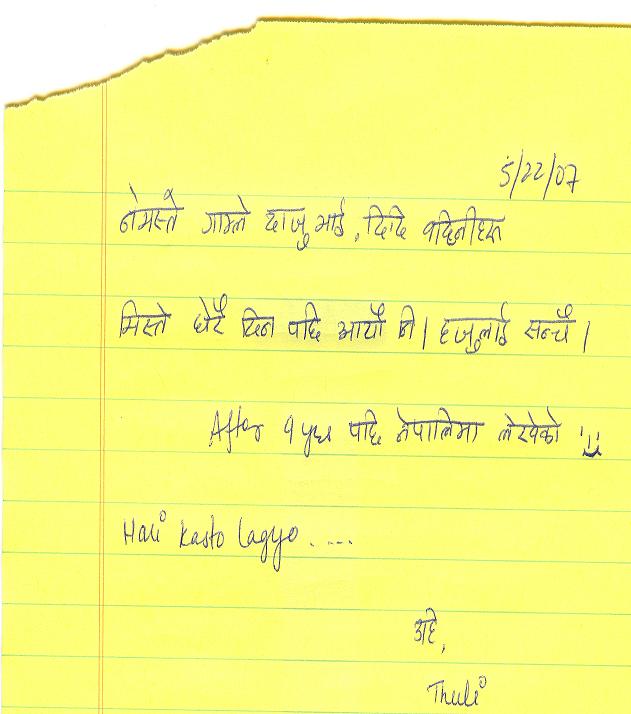 5/22/07
नेमस्ते गाम्ले दाजु भाई, दिदि वहिनीहरू
मिस्ते धेरै दिन पछि आयौ नी | हजुलाई सन्चै |
After 9 yrs पछि नेपालिमा लेखेको
Hari kasto lagyo . ....
अहे,
Thuli